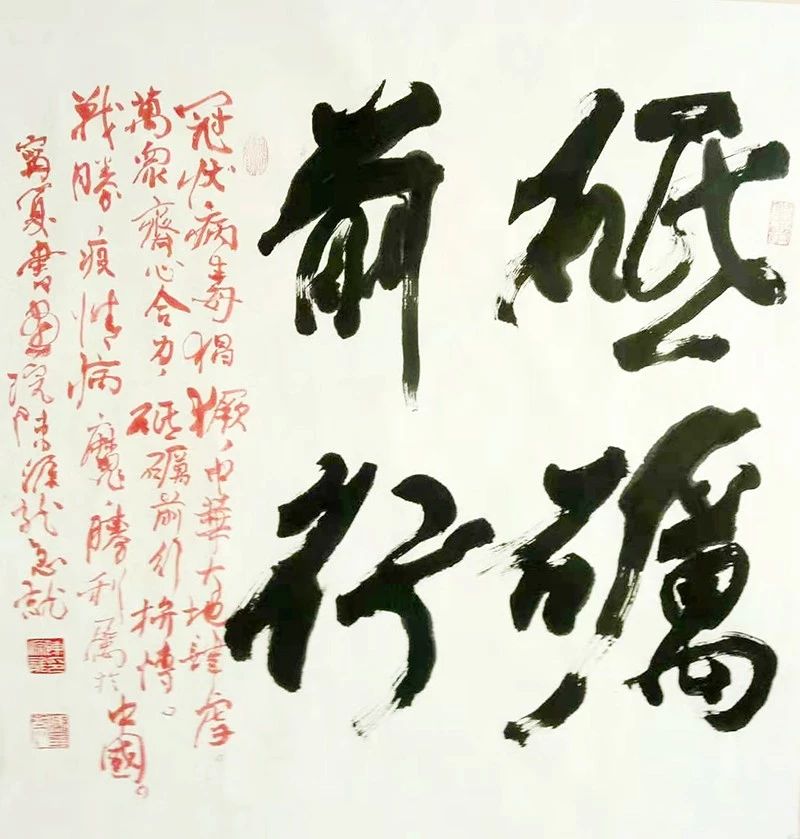 砥礪
前行
冠狀病毒猖獗，中華大地肆虐。
萬衆齊心合力，砥礪前行拚搏。
戰勝疫情病魔，勝利屬於中國。
寧夏書畫院陳龍急就